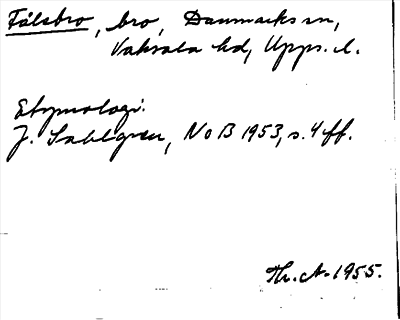 Fålebro, bro, Danmarks sn,
Vaksala hd, Upps. l.
Etymologi.
J. Sahlgren, NoB 1953, s. 4 ff.
Th. A. 1955.